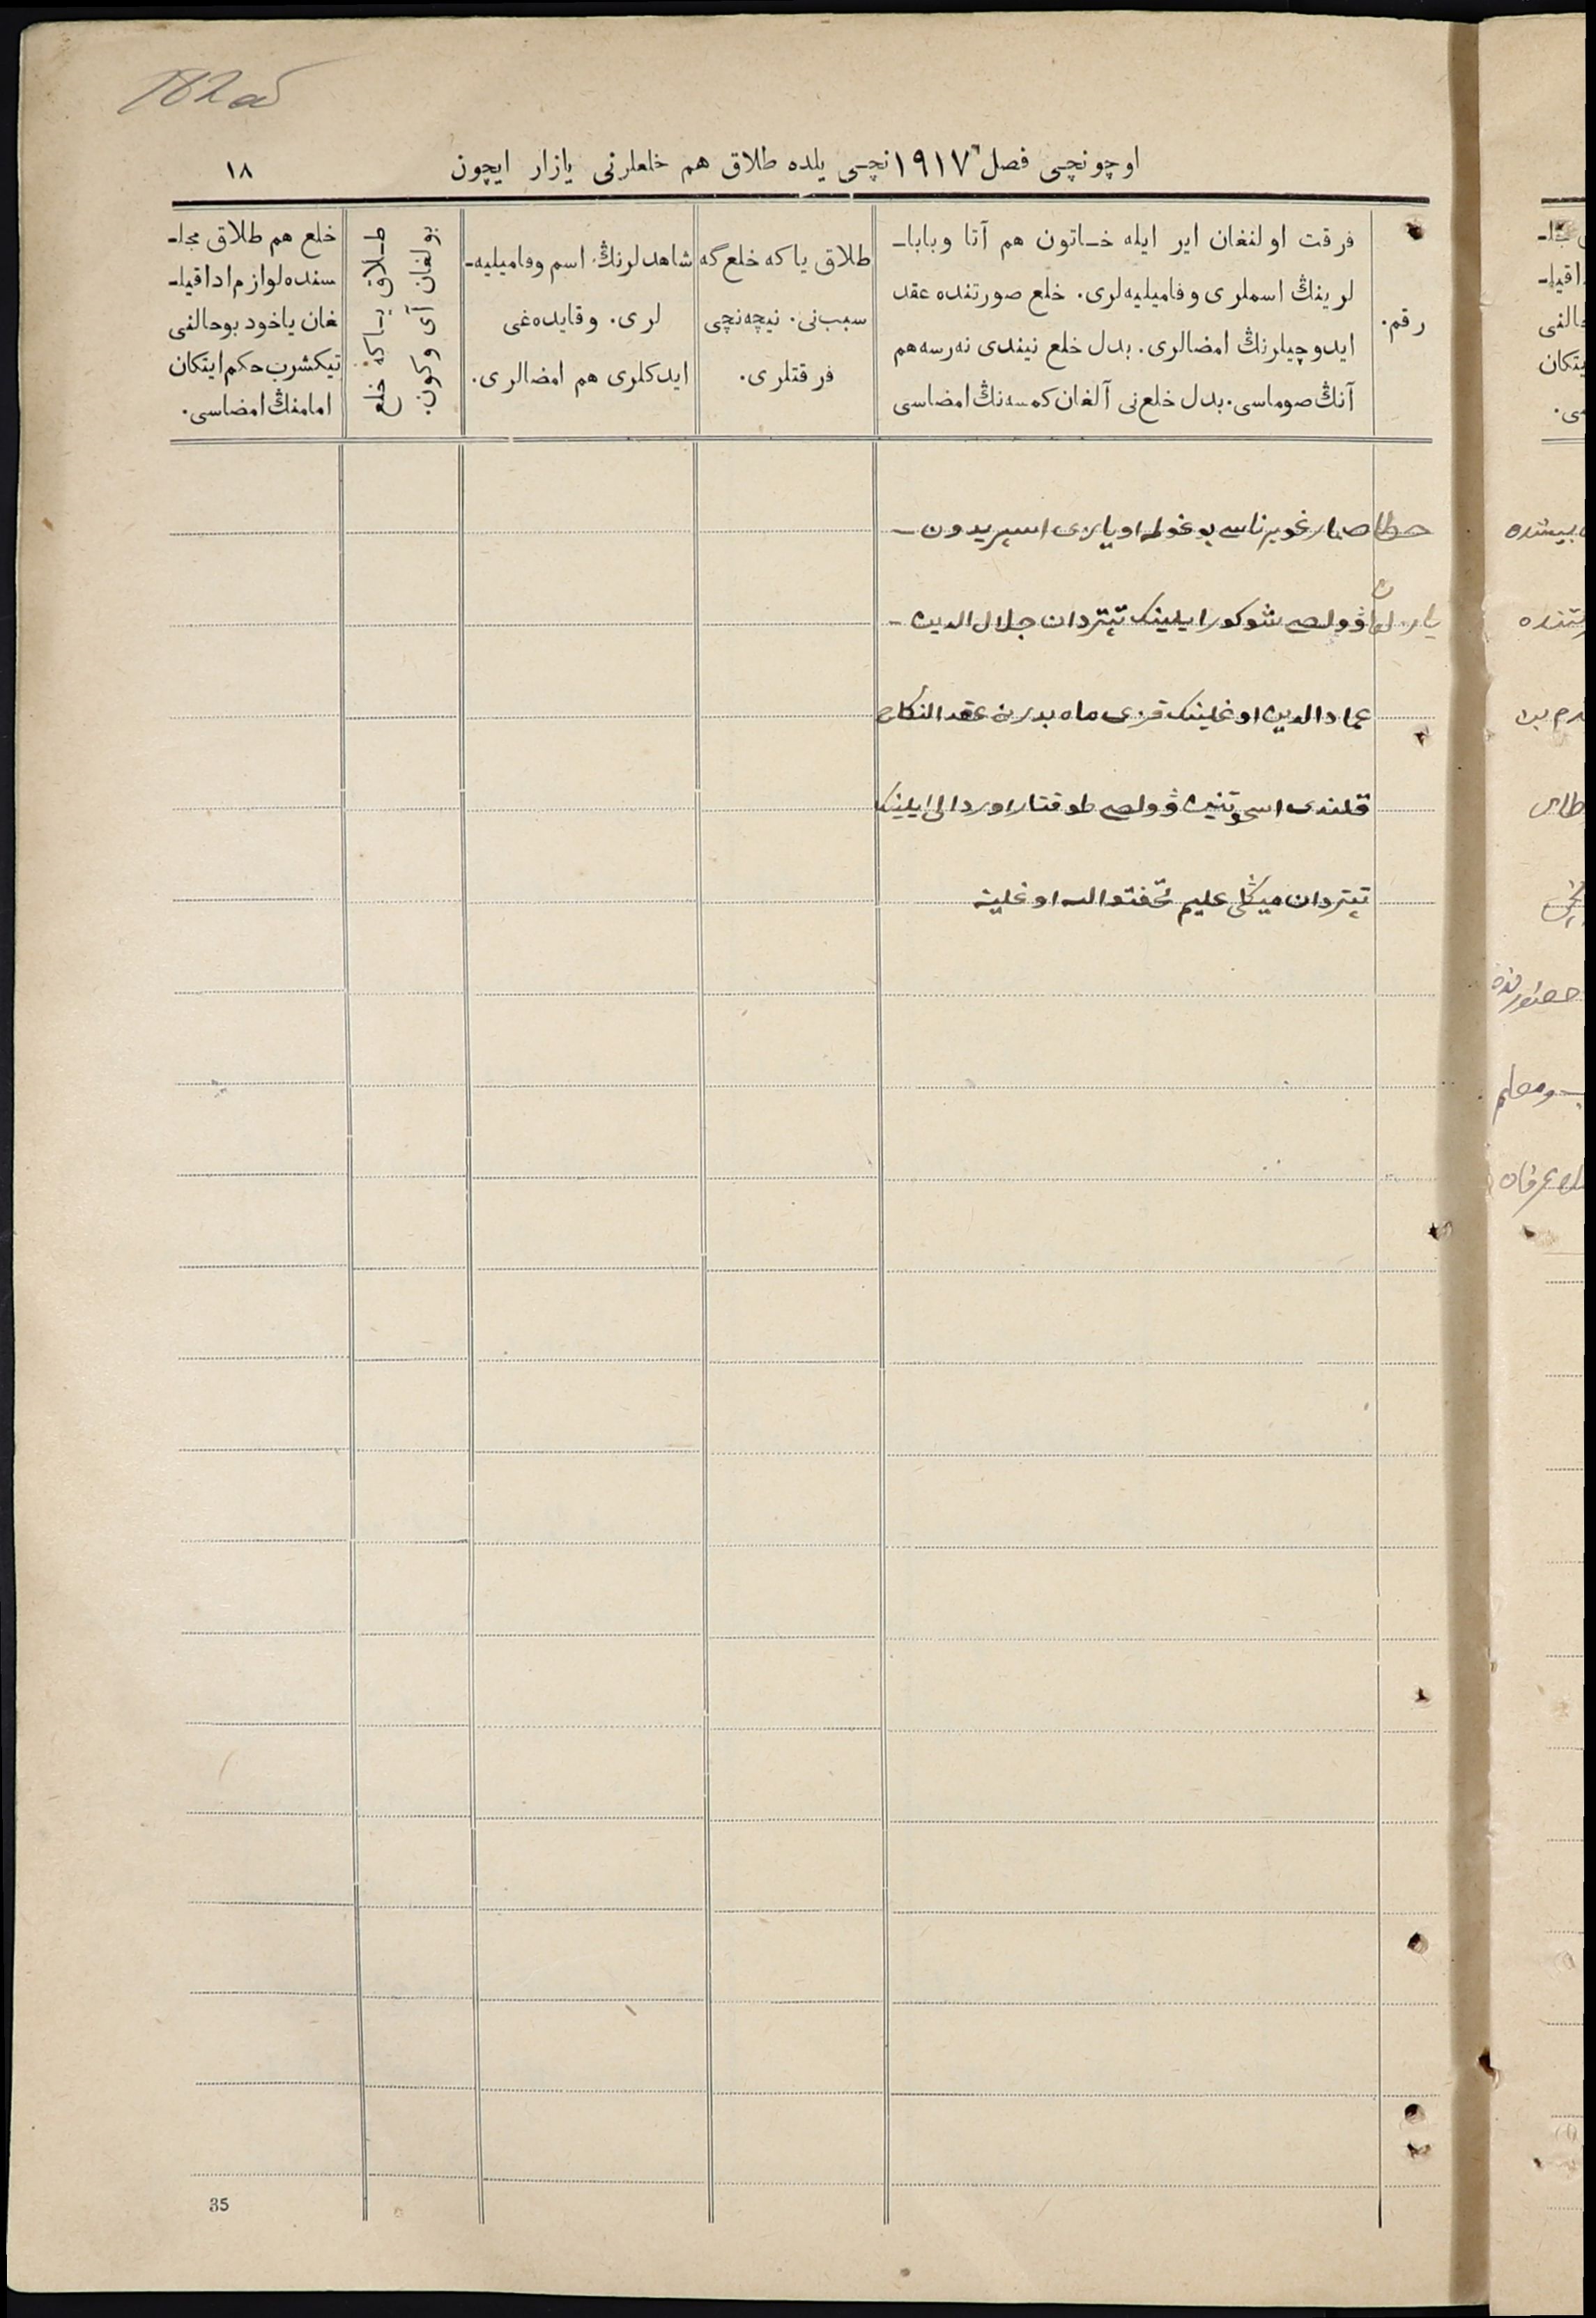 182 об
اوچونچی فصل ۱۹۱۷ نچی یلده طلاق هم خلعلرنی یازار ایچون
۱۸
رقم.
فرقت اولنغان ایر ایله خاتون هم آتا وبابا-
لرینڭ اسملری وفامیلیه‌لری. خلع صورتنده عقد
ایدوچیلرنڭ امضالری. بدل خلع نیندی نه‌رسه هم
آنڭ صوماسی. بدل خلع‌نی آلغان کمسه‌نڭ امضاسی
طلاق یا که خلع گه
سبب‌نی. نیچه‌نچی
فرقتلری.
شاهدلرنڭ اسم وفامیلیه-
لری. وقایده‌غی
ایدکلری هم امضالری.
طلاق یا که خلع
بولغان آی وکون.
خلع هم طلاق مجلـ-
سنده لوازم ادا قیلـ-
غان یاخود بو حالنی
تیکشرب حکم ایتکان
امامنڭ امضاسی.
خطا صمار غوبرناسی بوغولمه اویازی اسپریدون -
ۋولصی شوکور ایلینک تپتردان جلال الدین -
عماد الدین اوغلینک قزی ماه بدرنه عقد النکاح
قلندی ۋولصی طوقتار اوردالی ایلینک
تپتردان میڭلی علیم اوغلینه
35